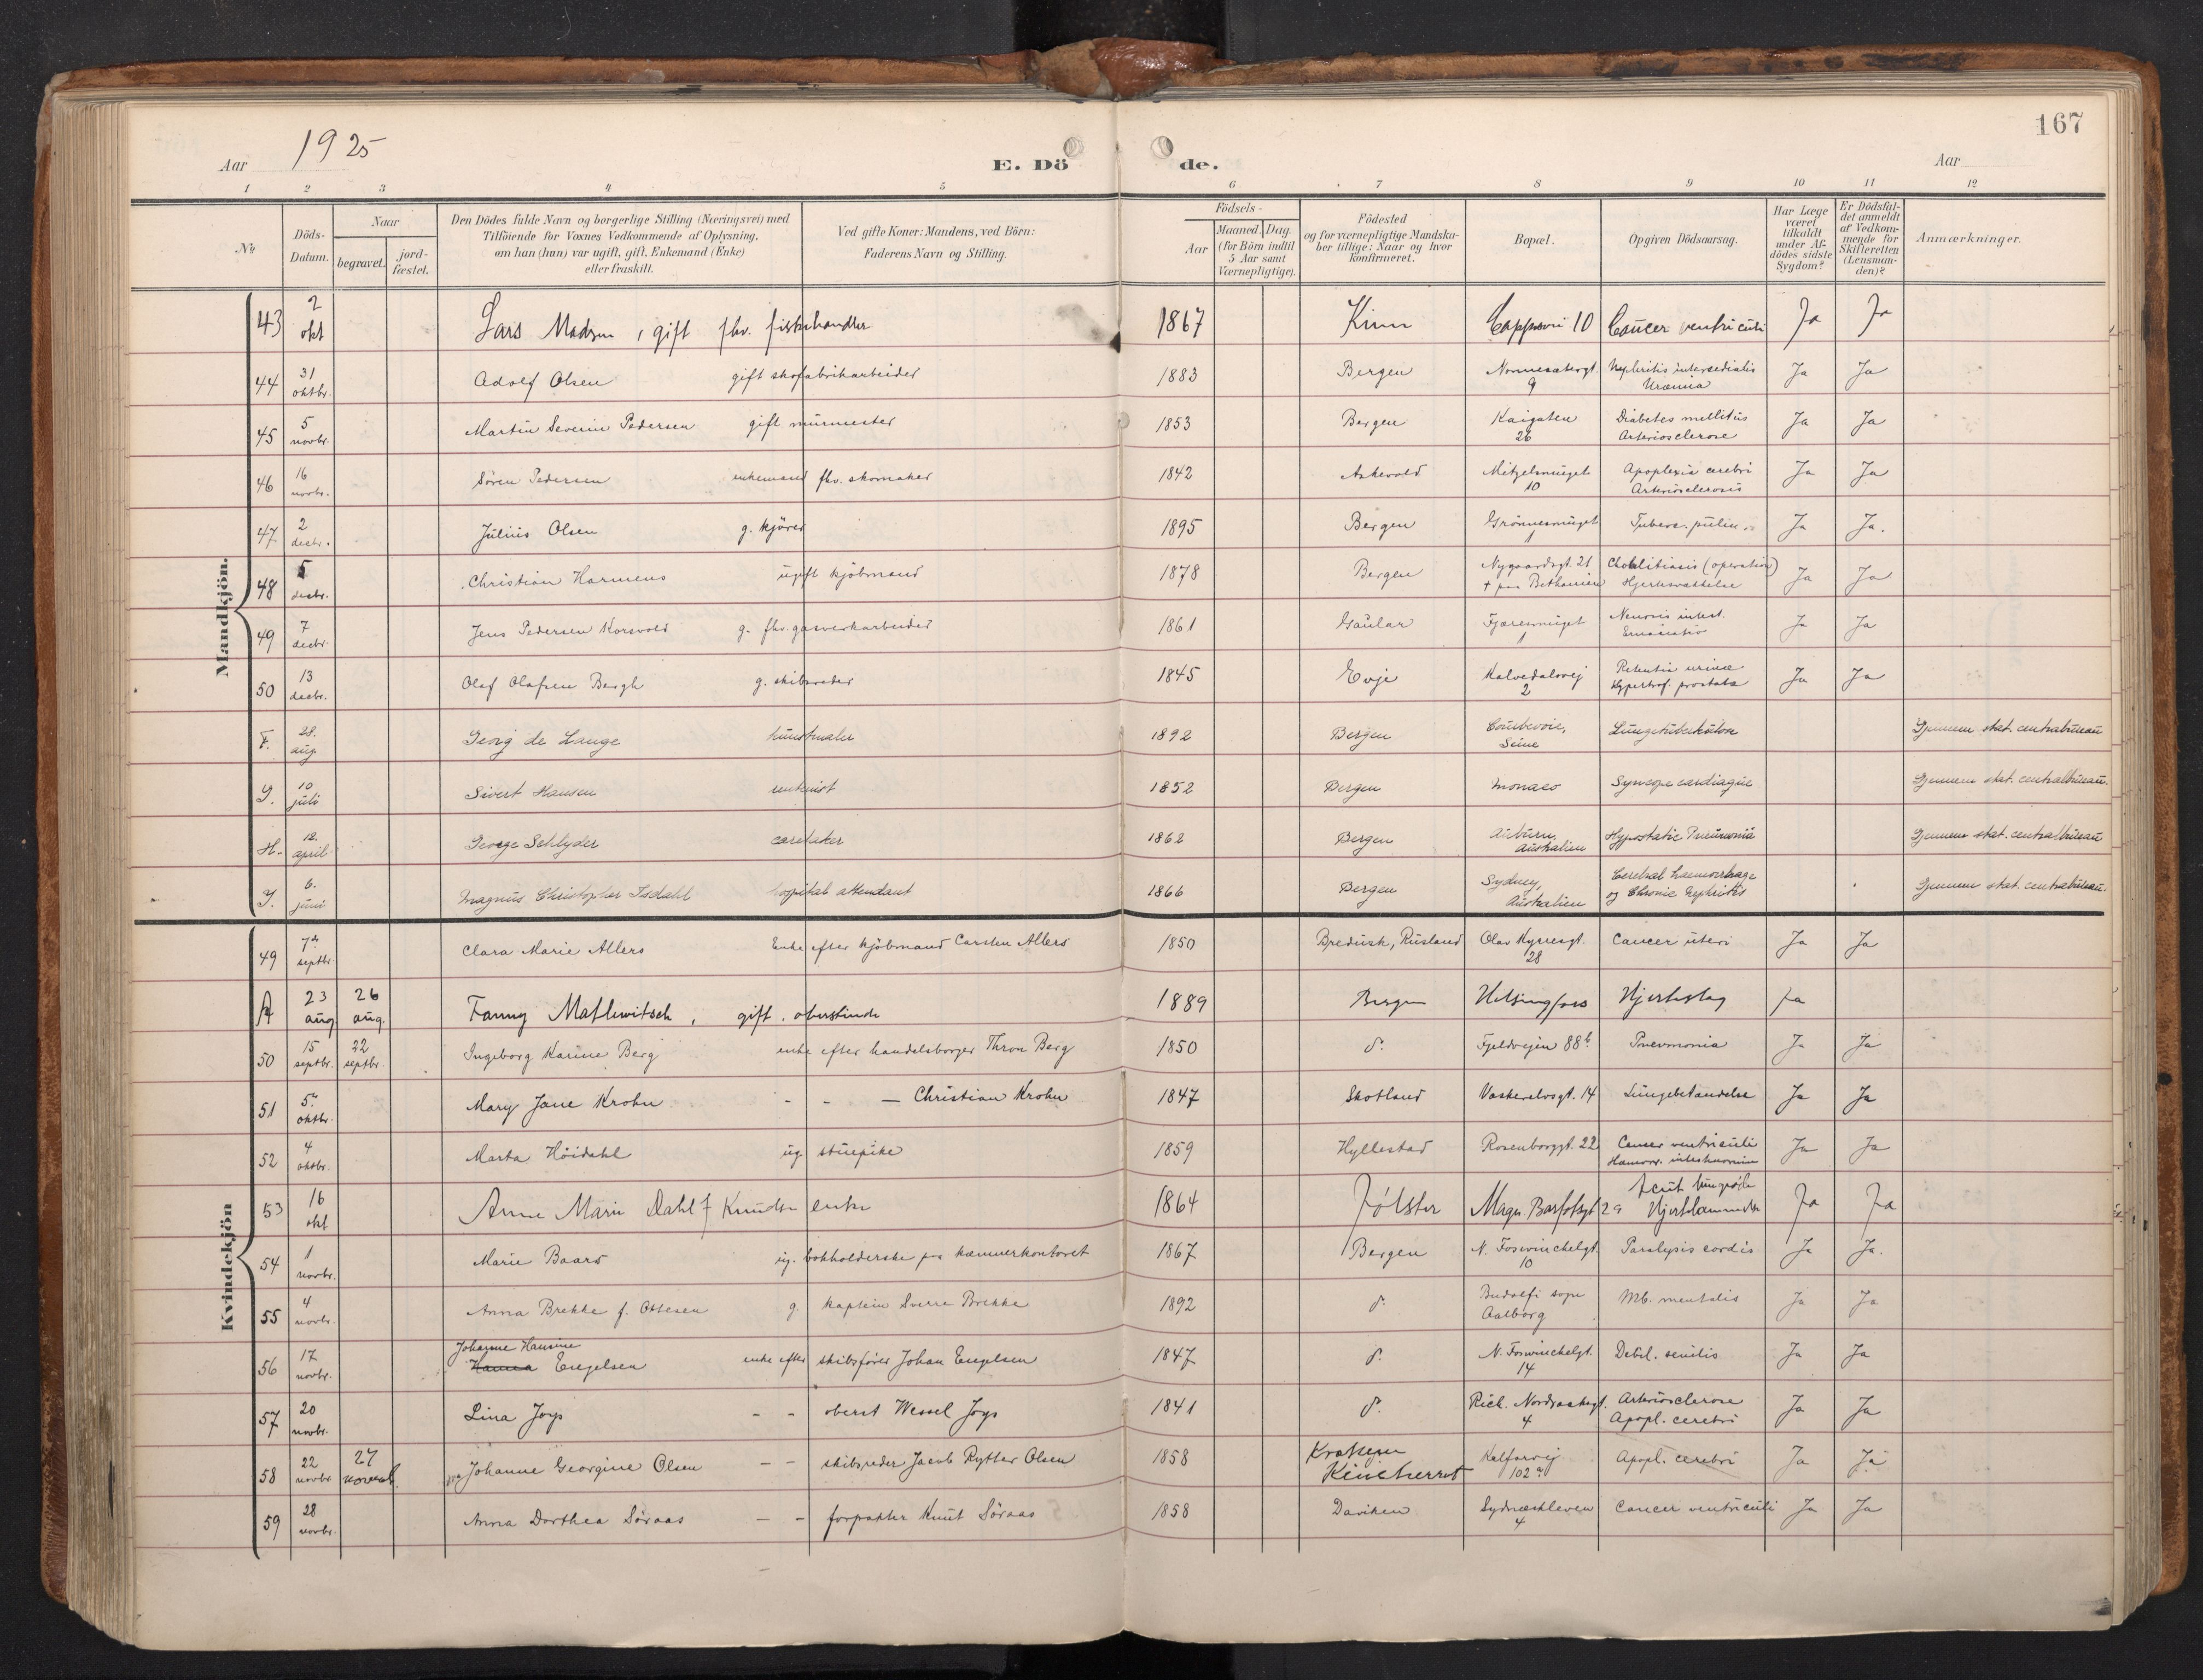 167
Aar 1925 E. Dö de. Aar
1 2 3 4 5 6 7 8 9 10 11 12
No
Döds-Datum.
Naar
begravet. jord-fæstet.
Den Dödes fulde Navn og borgerlige Stilling (Næringsvei) med
Tilföiende for Voxnes Vedkommende af Oplysning,
om han (hun) var ugift, gift, Enkemand (Enke)
eller fraskilt.
Ved gifte Koner: Mandens, ved Börn:
Faderens Navn og Stilling.
Födsels-
Aar Maaned. Dag.
(for Börn indtil
5 Aar samt
Værnepligtige).
Födested
og for værnepligtige Mandska-
ber tillige: Naar og hvor
konfirmeret.
Bopæl.
Opgiven Dödsaarsag.
Har Læge
været
tilkaldt
under Af-
dödes sidste
Sygdom?
Er Dödsfal-
det anmeldt
af Vedkom-
mende for
Skifteretten
(Lensman-
den)?
Anmærkninger.
Mandkjön.
43 2 okt Lars Madsen, gift fhv. fiskehandler 1867 Kinn 10 Cancer ventriculi Ja Ja
44 31 oktbr. Adolf Olsen gift skofabrikarbeider 1883 Bergen 9 Uræmia Ja Ja
45 5 novbr. Martin Severin Pedersen gift murmester 1853 Bergen Kaigaten 26 Diabetes mellitus Arteriosclerose Ja Ja
46 16 novbr. Sören Pedersen enkemand fhv. skomaker 1842 Askevold 10 Apoplexia cerebri Arteriosclerosis Ja Ja
47 2 decbr. Julius Olsen g. kjörer 1895 Bergen Grönnesmuget 1 Tuberc. pulm. Ja Ja.
48 5 decbr. Christian Harmens ugift kjöbmand 1878 Bergen Nygaardsgt. 21 + paa Bethanien (operation) Ja Ja
49 7 decbr. Jens Pedersen Korsvold g. fhv. gasverkarbeider 1861 Gaular 1 Ja Ja
50 13 decbr. Olaf Olafsen Bergh g. skibsreder 1845 Evje Kalvedalsvej 2 Retentio urinæ Hypertrof. prostatae Ja Ja
F. 28. aug Georg de Lange kunstmaler 1892 Bergen Courbevoie, Seine Lungetuberkulose Gjennem stat. centralbureau
G. 10 juli Sivert Hansen rentenist 1852 Bergen Monaco Syncope cardiaque Gjennem stat. centralbureau.
H. 12. april George Schlyder caretaker 1862 Bergen Auburn, Australien Hypostatic Pneumonia Gjennem stat. centralbureau
I. 6. juni Magnus Christopher Isdahl hospital attendant 1866 Bergen Sydney, Australien Cerebral haemorrhage og Chronic Nephritis Gjennem stat. centralbureau.
Kvindekjön
49 7de septbr. Clara Marie Allers Enke efter kjöbmand Carsten Allers 1850 Rusland Olav Kyrresgt. 28 Cancer uteri Ja Ja
A 23 aug 26 aug. Fanny Mathewitsch, gift. oberstinde 1889 Bergen Helsingfors Hjerteslag Ja
50 15 septbr. 22 septbr. Ingeborg Karine Berg enke efter handelsborger Thron Berg 1850 d. Fjeldvejen 88b Pnevmonia Ja Ja
51 5. oktbr. Mary Jane Krohn - - — Christian Krohn 1847 Skotland Vaskerelvsgt. 14 Lungebetændelse Ja Ja
52 4 oktbr. Marta Höidahl ug. stuepike 1859 Hyllestad Rosenborggt. 22 Cancer ventriculi Ja Ja
53 16 okt Anne Marie Dahl f Knudsen enke 1864 Jølster Magn. Barfotsgt 29 Acut Ja Ja
54 1 novbr. Marie Baars ug. bokholderske paa kæmnerkontoret 1867 Bergen N. Foswinckelgt. 10 Paralysis cordis Ja Ja.
55 4 novbr. Anna Brekke f. Ottesen g. kaptein Sverre Brekke 1892 d. Budolfi sogn Aalborg Mb. mentalis Ja Ja
56 17 novbr. Johanne Hansine Hanna Engelsen enke efter skibsförer Johan Engelsen 1847 d. N. Foswinckelgt. 14 Debil. senilis Ja Ja
57 20 novbr. Lina Joys - - oberst Wessel Joys 1841 d. Rich. Nordraaksgt. 4 Arteriosclerose Apopl. cerebri Ja Ja
58 22 novbr 27 novemb. Johanne Georgine Olsen - - skibsreder Jacob Rytter Olsen 1858 Kinsherred Kalfarvej 102a Apopl. cerebri Ja Ja
59 28 novbr. Anna Dorthea Söraas - - forpakter Knut Söraas 1858 Daviken Sydneskleven 4 Cancer ventriculi Ja Ja